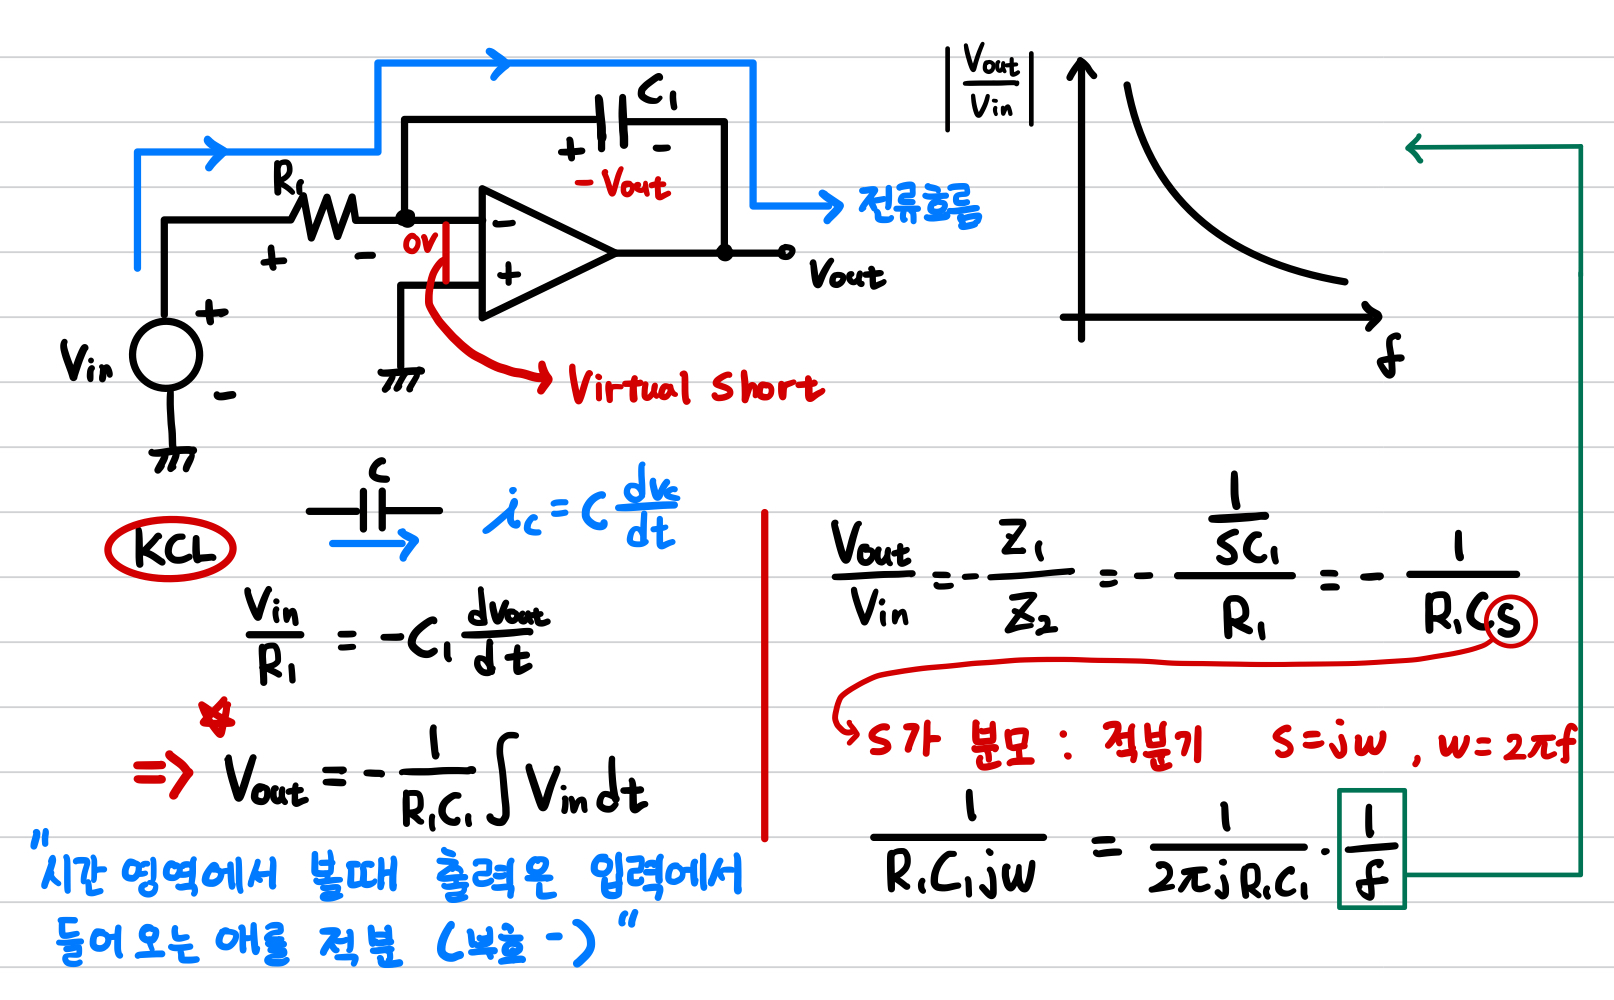 C₁
+ -
- Vout
R₁
+ -
0V
-
+
Vout
전류흐름
Vin
+
-
Virtual short
|Vout/Vin|
f
C
i_c = C dv_c/dt
KCL
Vin/R₁ = -C₁ dvout/dt
⇒ Vout = - 1/(R₁C₁) ∫ Vin dt
"시간 영역에서 볼때 출력은 입력에서
들어오는 애를 적분 (부호 -)"
Vout/Vin = - Z₁/Z₂ = - (1/(SC₁))/R₁ = - 1/(R₁CS)
S가 분모 : 적분기 S=jw , w=2πf
1/(R₁C₁jw) = 1/(2πjR₁C₁) · 1/f